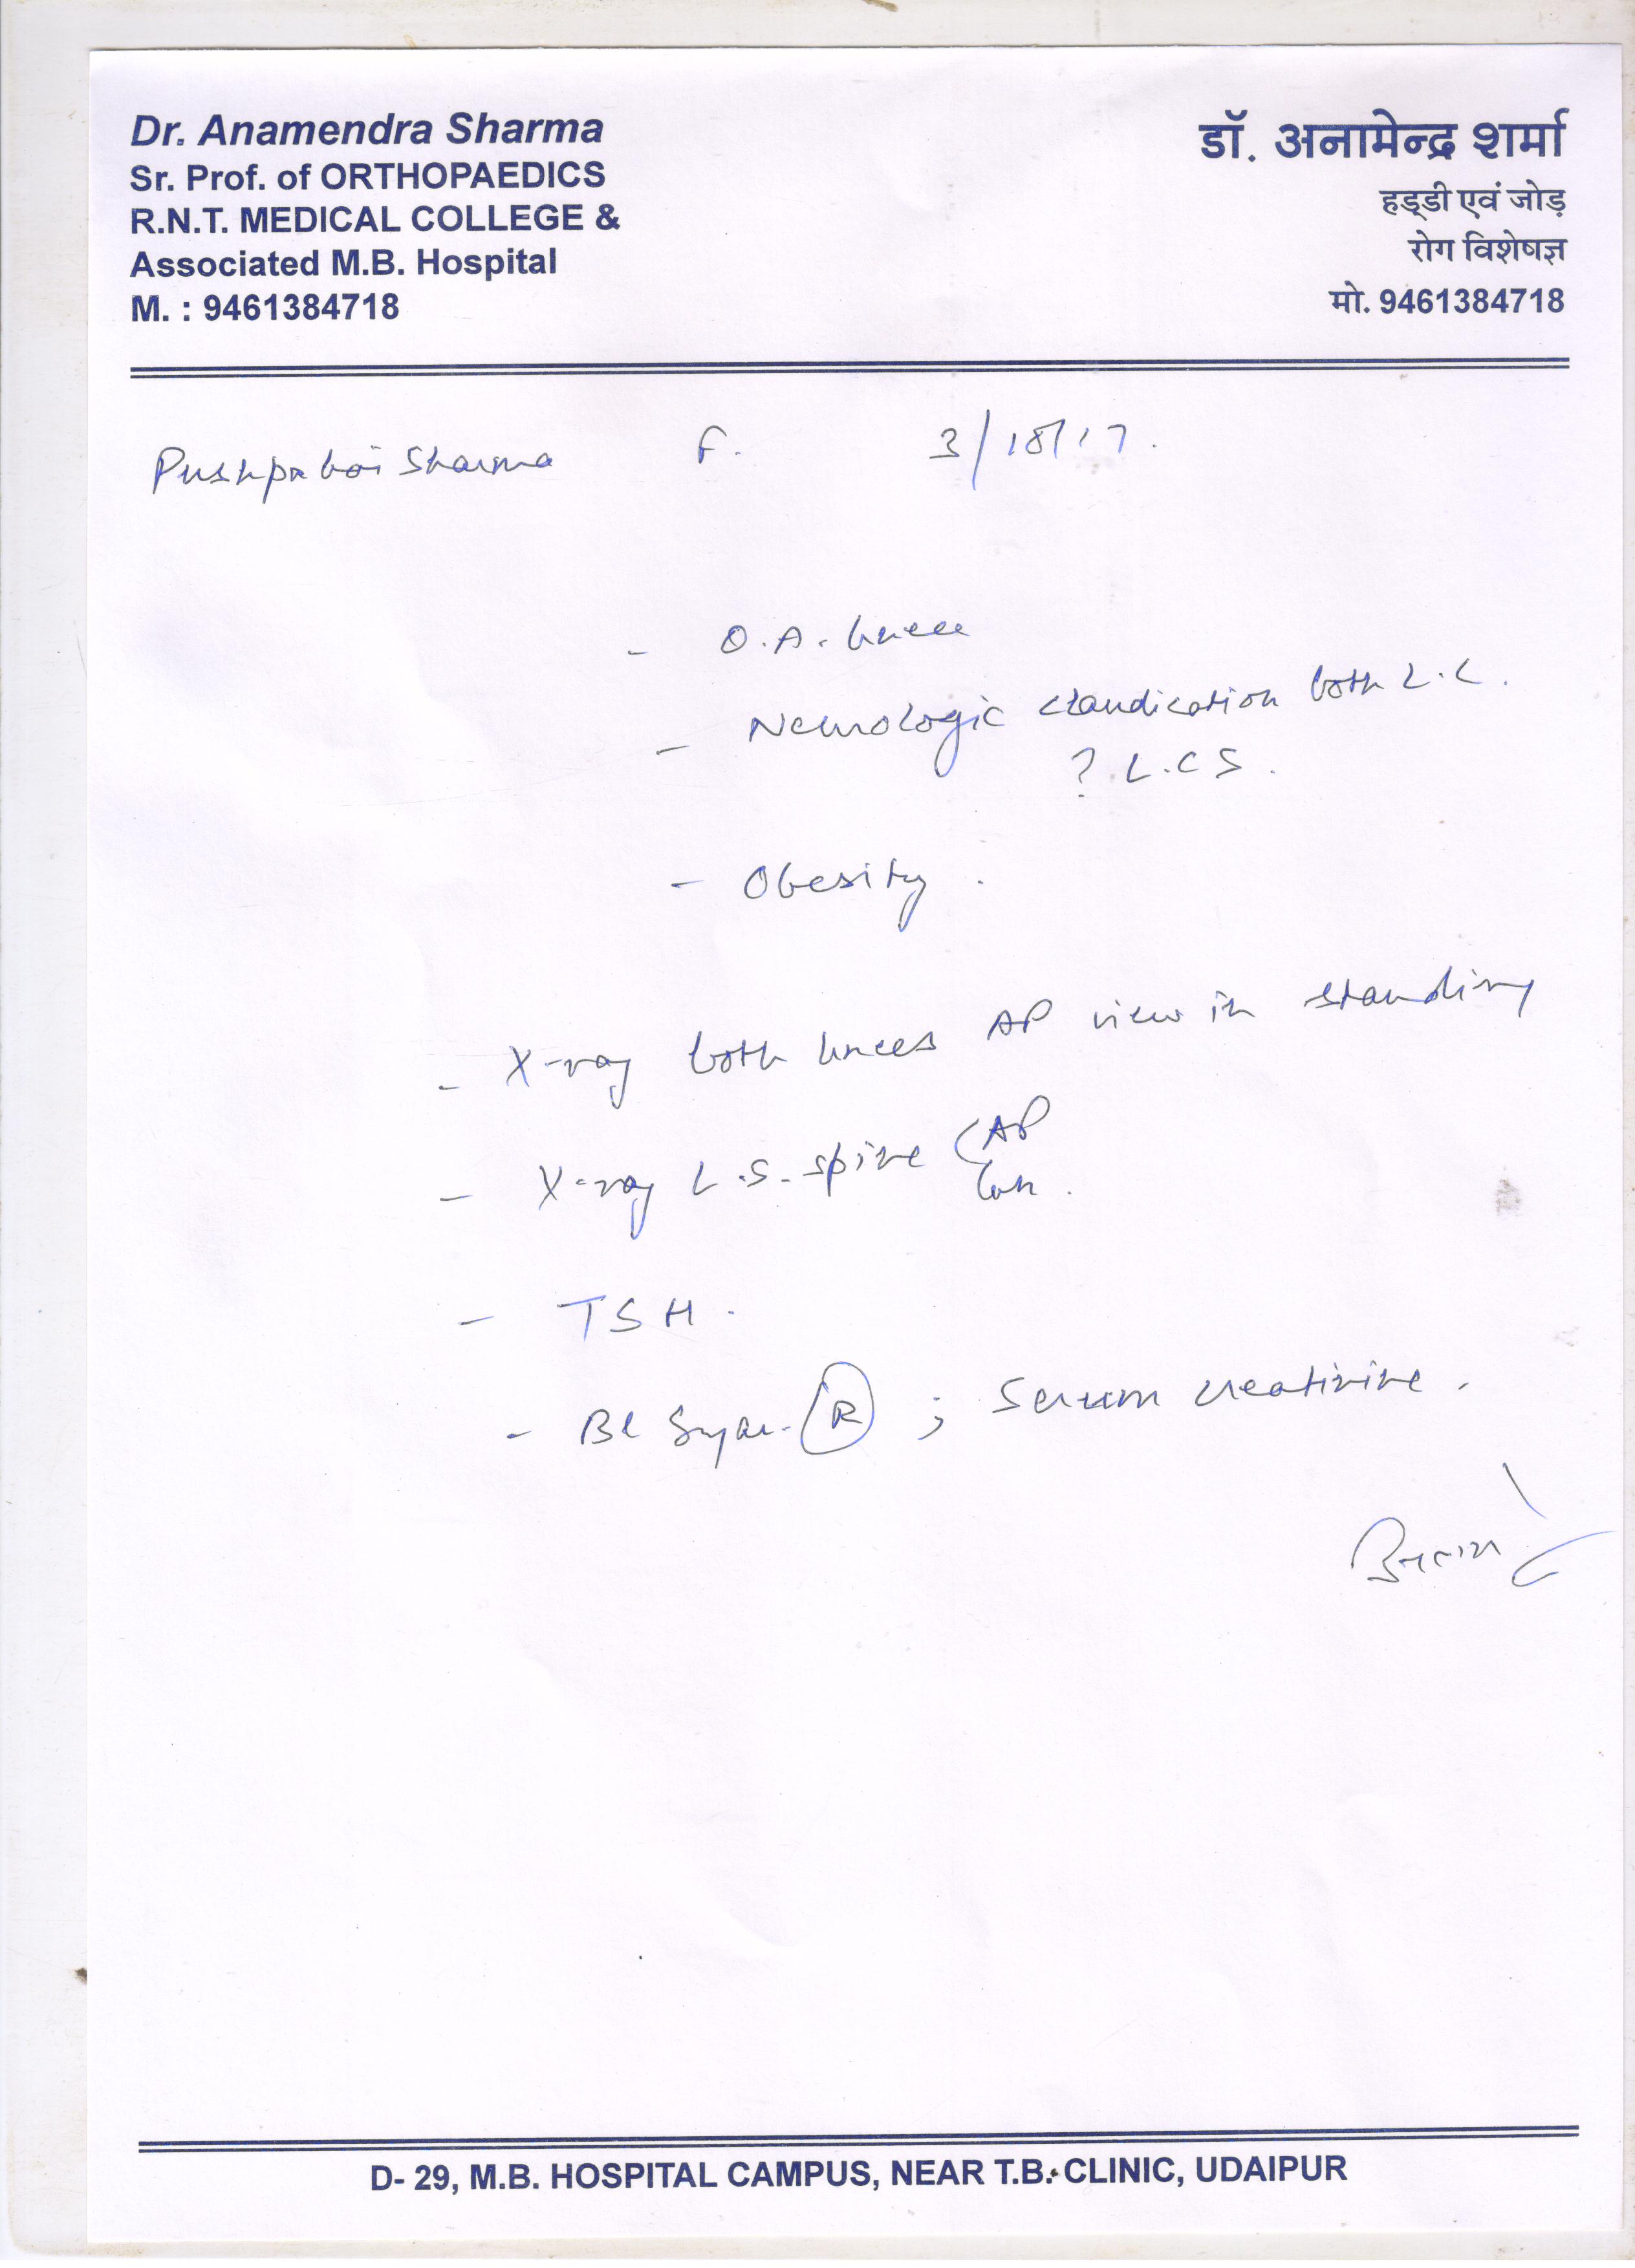 Dr. Anamendra Sharma
Sr. Prof. of ORTHOPAEDICS
R.N.T. MEDICAL COLLEGE &
Associated M.B. Hospital
M. : 9461384718
डॉ. अनामेन्द्र शर्मा
हड्डी एवं जोड़
रोग विशेषज्ञ
मो. 9461384718
Pushpa bai Sharma F. 3/18/17.
- O.A. knee
- Neurologic claudication both L.L.
? L.C S.
- Obesity.
- X-ray both knees AP view in standing
- X-ray L.S. spine AP
- TSH.
- Bl Sugar. (R) ; Serum creatinine.
D- 29, M.B. HOSPITAL CAMPUS, NEAR T.B. CLINIC, UDAIPUR